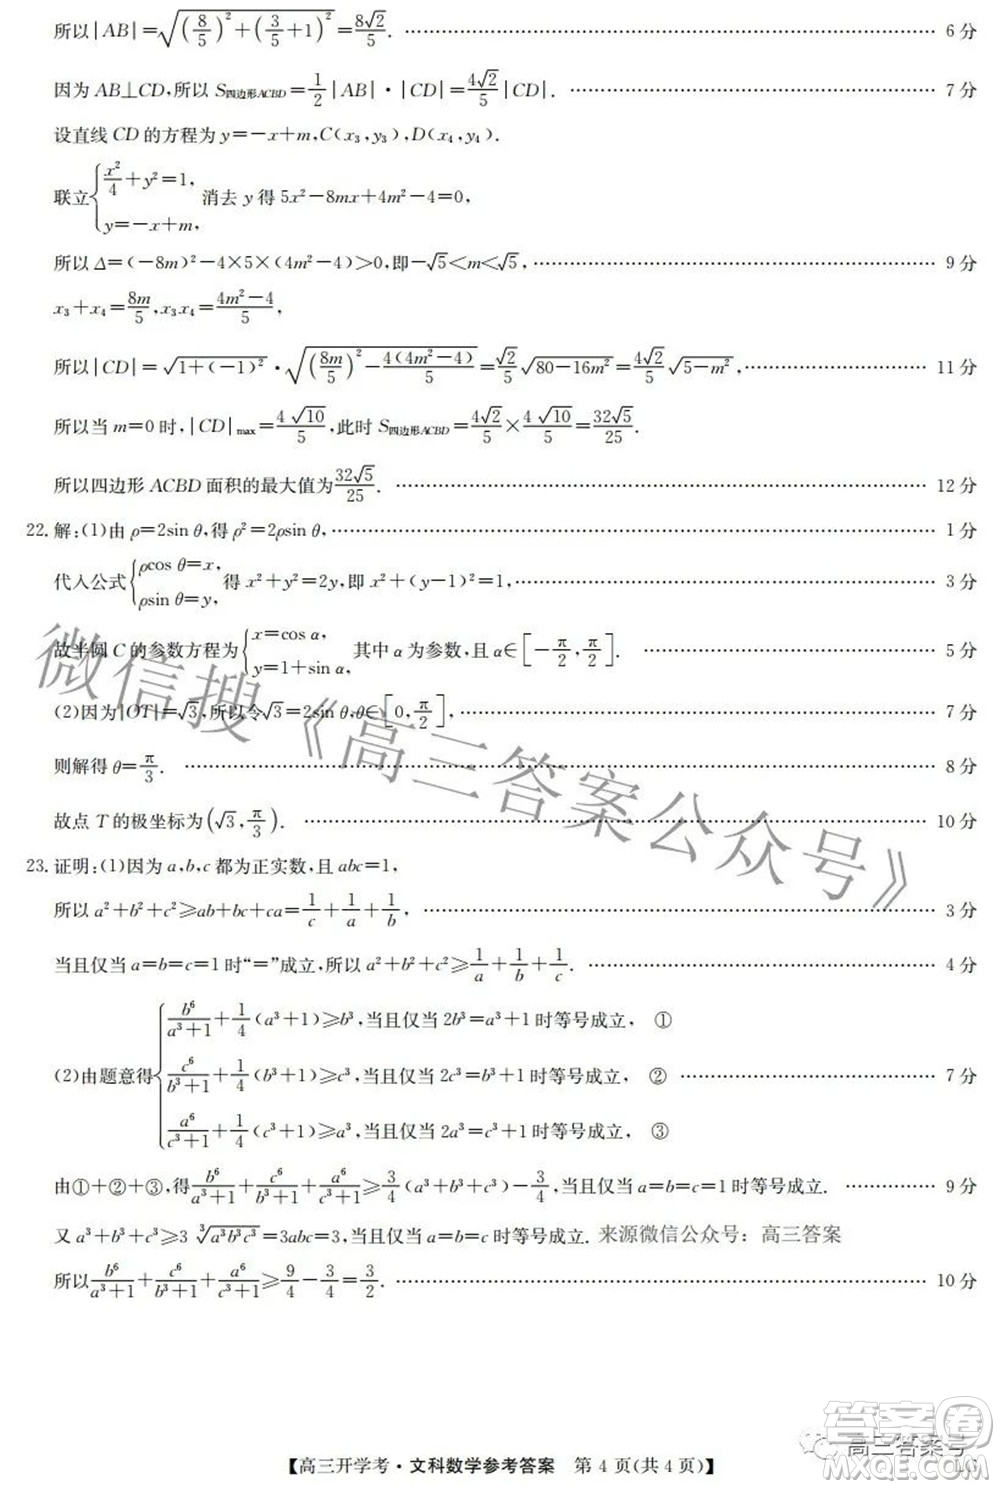 所以|AB|=√((8/5)²+(3/5+1)²)=8√2/5. …… 6分
因为AB⊥CD,所以S四边形ACBD=1/2|AB|·|CD|=4√2/5|CD|. …… 7分
设直线CD的方程为y=-x+m,C(x₃,y₃),D(x₄,y₄).
联立{x²/4+y²=1, y=-x+m, 消去y得5x²-8mx+4m²-4=0,
所以Δ=(-8m)²-4×5×(4m²-4)>0,即-√5<m<√5, …… 9分
x₃+x₄=8m/5,x₃x₄=(4m²-4)/5,
所以|CD|=√(1+(-1)²)·√((8m/5)²-4(4m²-4)/5)=√2/5√(80-16m²)=4√2/5√(5-m²), …… 11分
所以当m=0时,|CD|max=4√10/5,此时S四边形ACBD=4√2/5×4√10/5=32√5/25.
所以四边形ACBD面积的最大值为32√5/25. …… 12分
22.解:(1)由ρ=2sin θ,得ρ²=2ρsin θ, …… 1分
代入公式{ρcos θ=x, ρsin θ=y, 得x²+y²=2y,即x²+(y-1)²=1, …… 3分
故半圆C的参数方程为{x=cos α, y=1+sin α, 其中α为参数,且α∈[-π/2,π/2]. …… 5分
(2)因为|OT|=√3,所以令√3=2sin θ,θ∈[0,π/2], …… 7分
则解得θ=π/3. …… 8分
故点T的极坐标为(√3,π/3). …… 10分
23.证明:(1)因为a,b,c都为正实数,且abc=1,
所以a²+b²+c²≥ab+bc+ca=1/c+1/a+1/b, …… 3分
当且仅当a=b=c=1时“=”成立,所以a²+b²+c²≥1/a+1/b+1/c. …… 4分
(2)由题意得{b⁶/(a³+1)+1/4(a³+1)≥b³,当且仅当2b³=a³+1时等号成立, ①
c⁶/(b³+1)+1/4(b³+1)≥c³,当且仅当2c³=b³+1时等号成立, ② …… 7分
a⁶/(c³+1)+1/4(c³+1)≥a³,当且仅当2a³=c³+1时等号成立, ③
由①+②+③,得b⁶/(a³+1)+c⁶/(b³+1)+a⁶/(c³+1)≥3/4(a³+b³+c³)-3/4,当且仅当a=b=c=1时等号成立. …… 9分
又a³+b³+c³≥3∛(a³b³c³)=3abc=3,当且仅当a=b=c时等号成立. 来源微信公众号：高三答案
所以b⁶/(a³+1)+c⁶/(b³+1)+a⁶/(c³+1)≥9/4-3/4=3/2. …… 10分
微信搜《高三答案公众号》
答案圈
高三答案号
【高三开学考·文科数学参考答案 第4页(共4页)】 LG
MXQE.COM